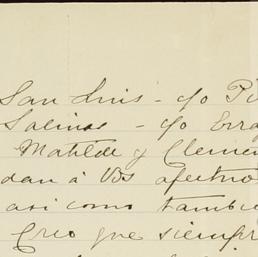 San Luis - c/o Pi
Salinas - c/o Erra
Matilde y Clemen
dan á Vds afectuo
asi como tambie
Creo que siempr